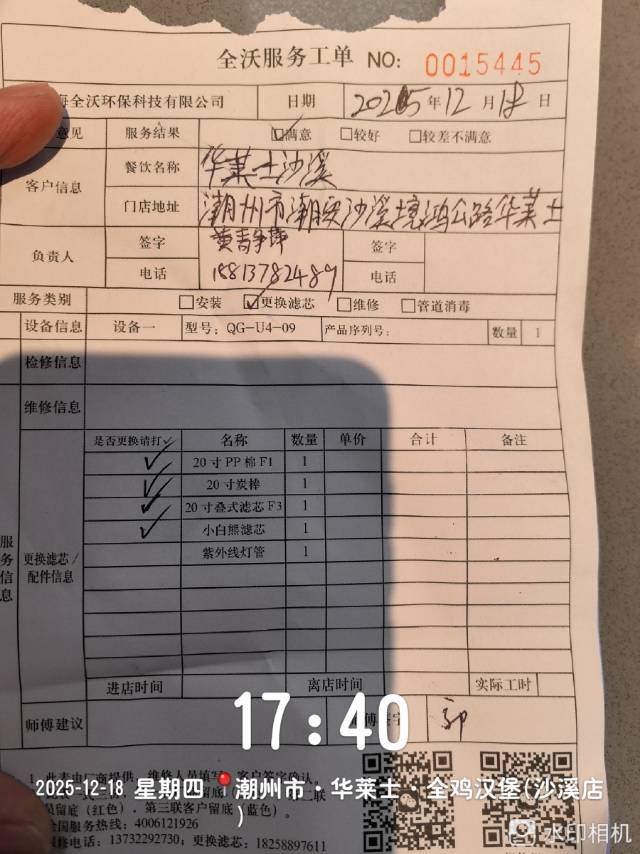 全沃服务工单 NO: 0015445
海全沃环保科技有限公司 日期 2025年12月18日
意见 服务结果 ☑满意 □较好 □较差不满意
客户信息 餐饮名称 华莱士沙溪
门店地址 潮州市潮安沙溪镇鸿公路华莱士
负责人 签字 签字
电话 18813782489 电话
服务类别 □安装 ☑更换滤芯 □维修 □管道消毒
设备信息 设备一 型号: QG-U4-09 产品序列号: 数量 1
检修信息
维修信息
服务信息
更换滤芯/配件信息
是否更换请打✓ 名称 数量 单价 合计 备注
✓ 20寸PP棉F1 1
✓ 20寸炭棒 1
✓ 20寸叠式滤芯F3 1
✓ 小白熊滤芯 1
紫外线灯管 1
进店时间 离店时间 实际工时
师傅建议 签字
17:40
2025-12-18 星期四 潮州市·华莱士·全鸡汉堡(沙溪店)
1、此表由厂商提供，维修人员填写，客户签字确认。
员留底（红色）、第三联客户留底（蓝色）。
全国服务热线: 4006121926
维修电话: 13732292730，更换滤芯: 18258897611
水印相机